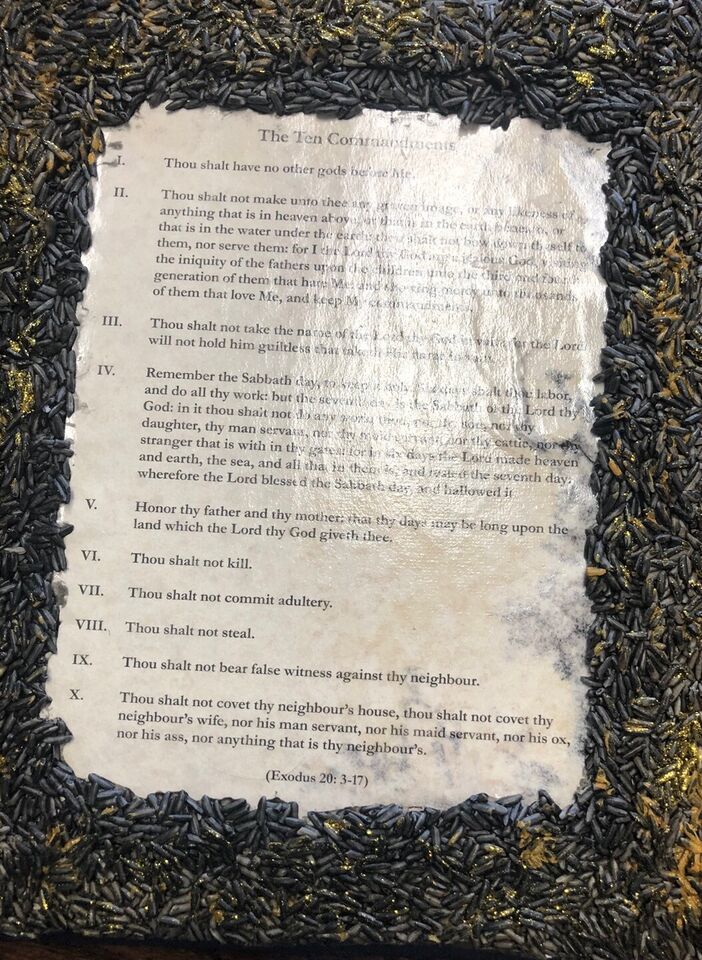 The Ten Commandments
I. Thou shalt have no other gods before Me.
II. Thou shalt not make unto thee any graven image, or any likeness of
anything that is in heaven above, or that is in the earth beneath, or
that is in the water under the earth: thou shalt not bow down thyself to
them, nor serve them: for I the Lord thy God am a jealous God,
the iniquity of the fathers upon the children unto the third and
generation of them that hate Me; and showing mercy unto thousands
of them that love Me, and keep My commandments.
III. Thou shalt not take the name of the Lord thy God in vain; for the Lord
will not hold him guiltless that taketh His name in vain.
IV. Remember the Sabbath day, to keep it holy. Six days shalt thou labor,
and do all thy work: but the seventh day is the Sabbath of the Lord thy
God: in it thou shalt not do any work, thou, nor thy son, nor thy
daughter, thy man servant, nor thy maid servant, nor thy cattle, nor thy
stranger that is with in thy gates: for in six days the Lord made heaven
and earth, the sea, and all that in them is, and rested the seventh day:
wherefore the Lord blessed the Sabbath day, and hallowed it
V. Honor thy father and thy mother: that thy days may be long upon the
land which the Lord thy God giveth thee.
VI. Thou shalt not kill.
VII. Thou shalt not commit adultery.
VIII. Thou shalt not steal.
IX. Thou shalt not bear false witness against thy neighbour.
X. Thou shalt not covet thy neighbour's house, thou shalt not covet thy
neighbour's wife, nor his man servant, nor his maid servant, nor his ox,
nor his ass, nor anything that is thy neighbour's.
(Exodus 20: 3-17)